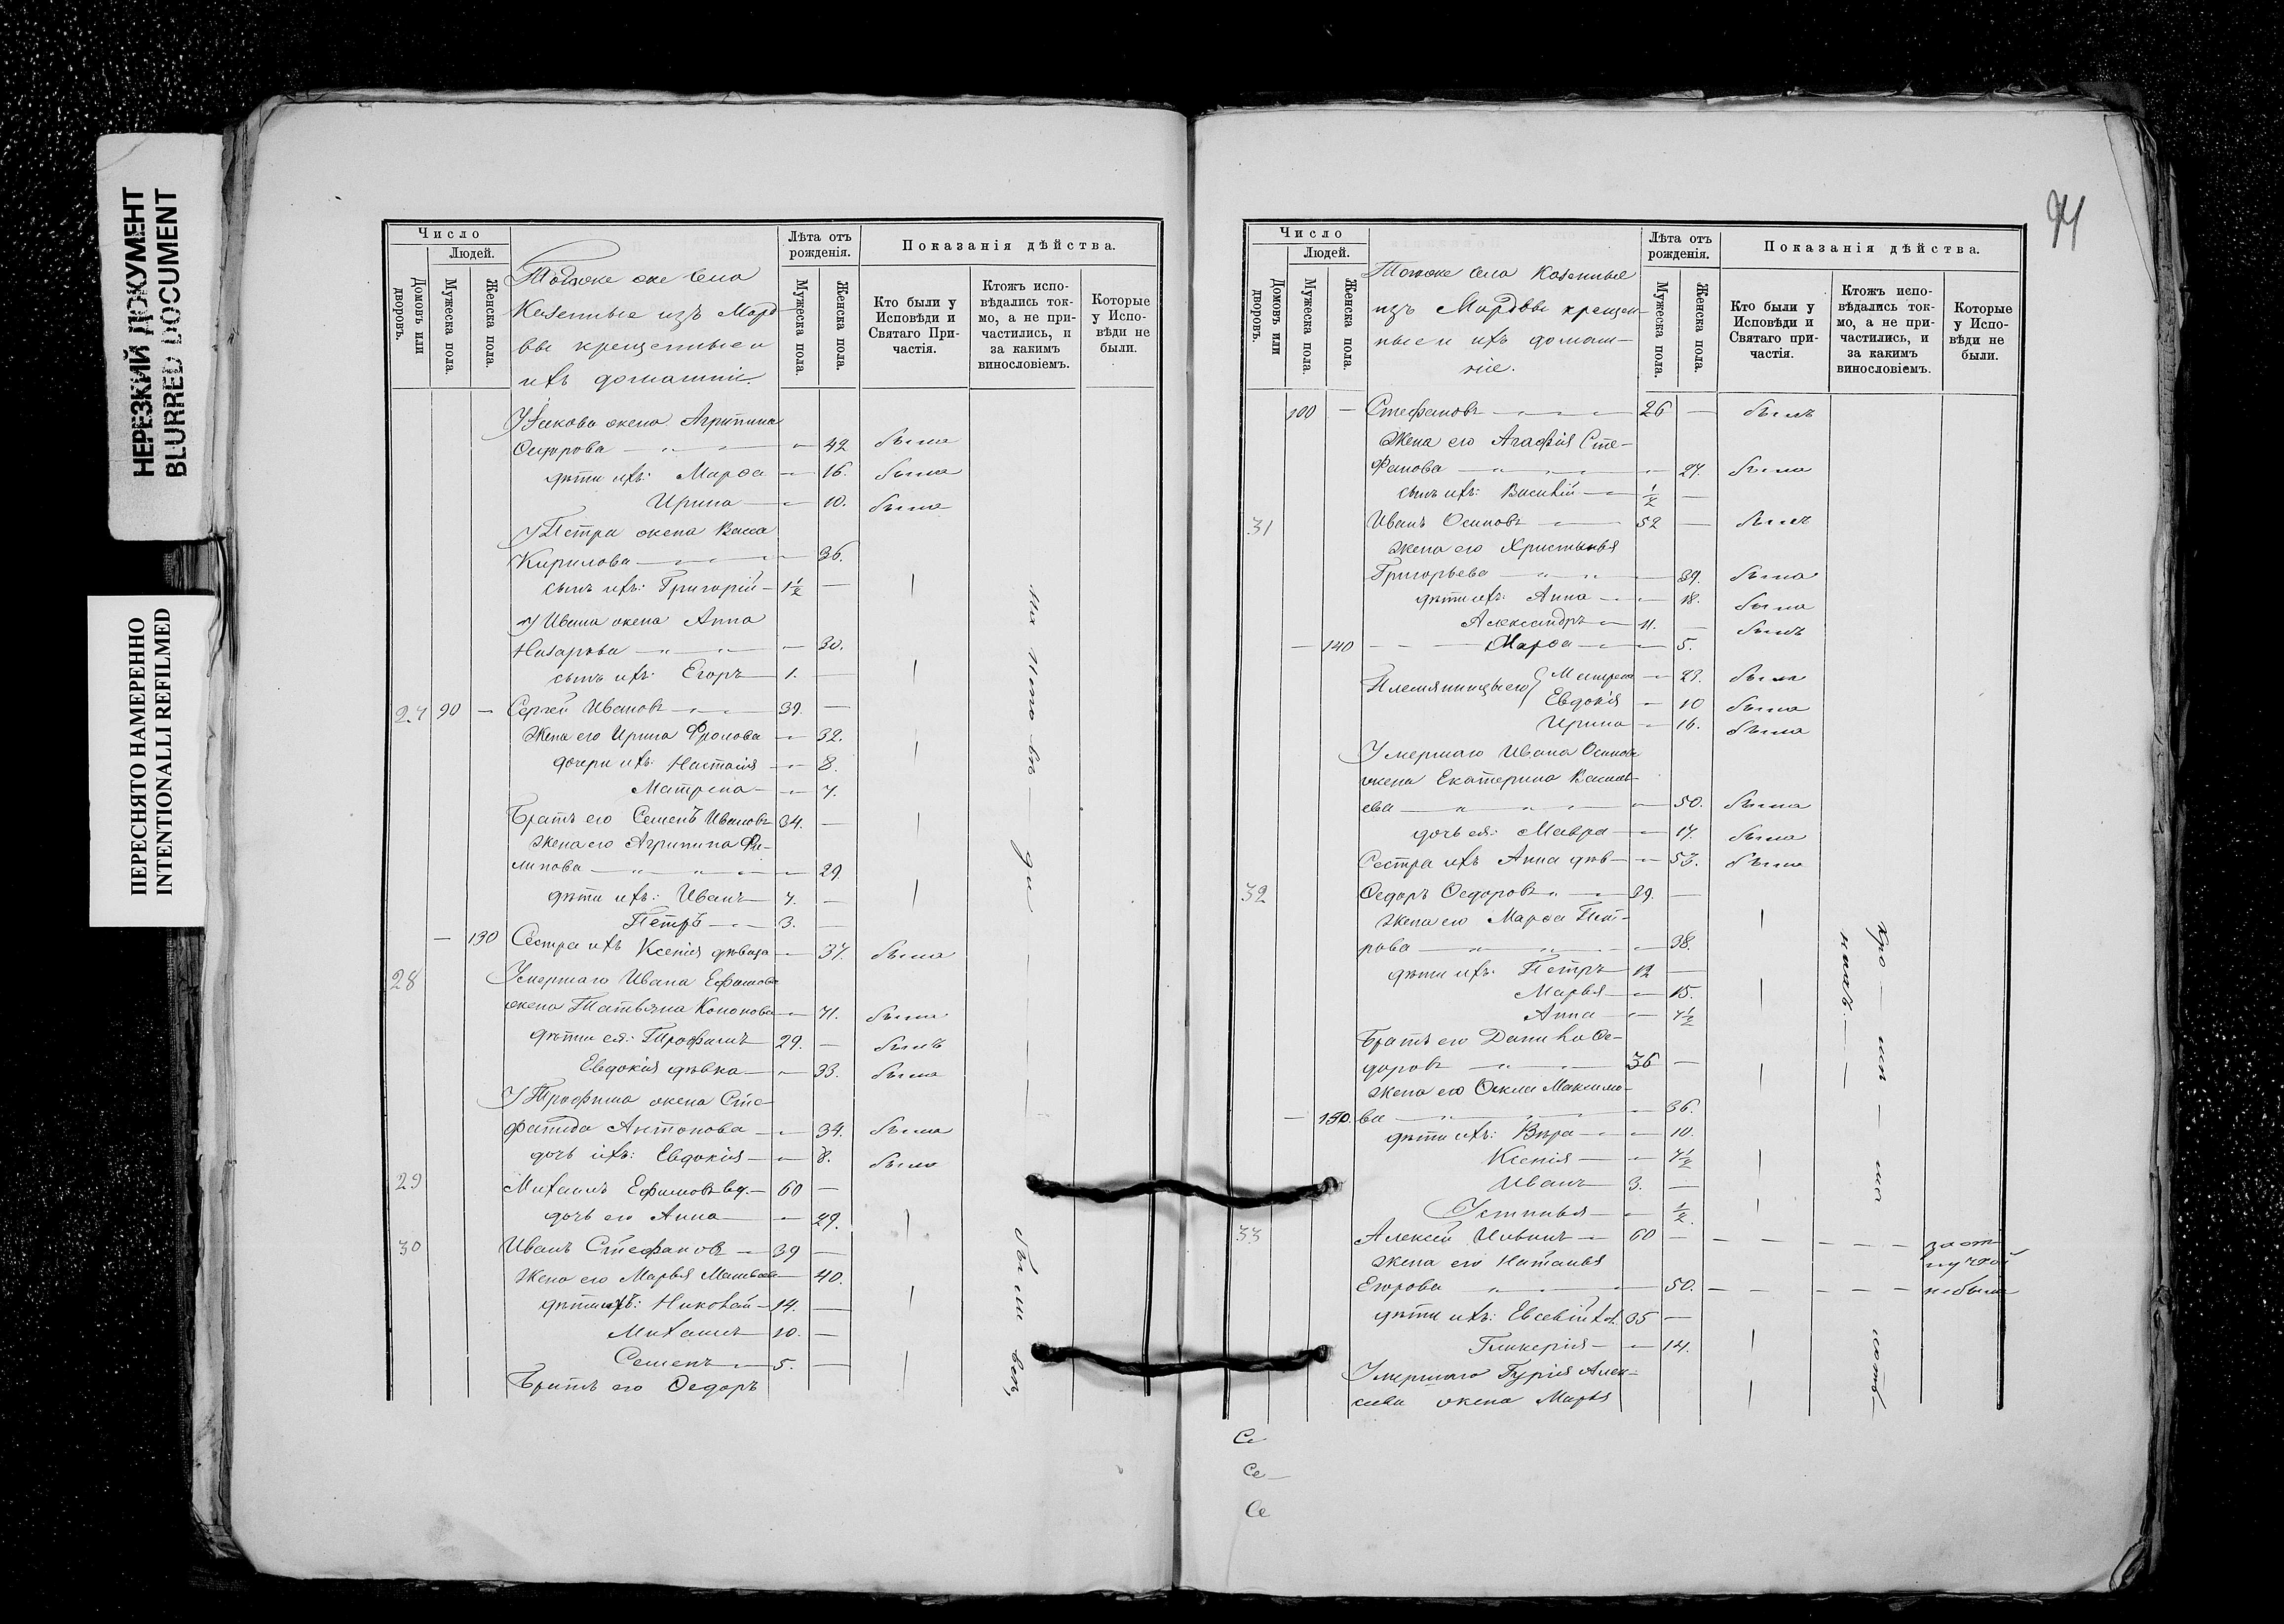 НЕРЕЗКИЙ ДОКУМЕНТ
BLURRED DOCUMENT
ПЕРЕСНЯТО НАМЕРЕННО
INTENTIONALLI REFILMED
Число
Людей.
Домовъ или дворовъ.
Мужеска пола.
Женска пола.
Тогоже же села
Казенные изъ Морд
вы крещенные и
ихъ домашніе
Лѣта отъ рожденія.
Мужеска пола.
Женска пола.
Показанія дѣйства.
Кто были у Исповѣди и Святаго Причастія.
Ктожъ исповѣдались токмо, а не причастились, и за какимъ винословіемъ.
Которые у Исповѣди не были.
У Якова жена Агрипина
— 42 была
дѣти ихъ: Марѳа — 16. была
Ирина — 10. была
У Петра жена Васса
Кирилова — 36.
сынъ ихъ: Григорій — 1½ —
У Ивана жена Анна
Назарова — 30.
сынъ ихъ: Егоръ — 1. —
27 90 — Сергей Ивановъ — 39. —
Жена его Ирина Фролова — 32.
дочери ихъ: Настасія — 8.
Матрена — 7.
Братъ его Семенъ Ивановъ 34. —
жена его Агрипина Фи-
липова — 29
дѣти ихъ: Иванъ 7. —
Петръ — 3. —
— 130 Сестра ихъ Ксенія дѣвица — 37. была
28 Умершаго Ивана Ефимова
жена Татьяна Кононова — 71. была
дѣти ея: Трофимъ 29. — былъ
Евдокія дѣвка — 33. была
У Трофима жена Сте-
фанида Антонова — 34. была
дочь ихъ: Евдокія — 8. была
29 Михаилъ Ефимовъ вд. — 60 —
дочь его Анна — 29.
30 Иванъ Стефановъ — 39 —
Жена его Марья — 40.
дѣти ихъ: Николай — 14. —
Михаилъ 10. —
Семенъ — 5. —
Братъ его Ѳедоръ
были
94
Число
Людей.
Домовъ или дворовъ.
Мужеска пола.
Женска пола.
Тогоже села Казенные
изъ Мордвы крещен-
ные и ихъ домаш-
ніе.
Лѣта отъ рожденія.
Мужеска пола.
Женска пола.
Показанія дѣйства.
Кто были у Исповѣди и Святаго причастія.
Ктожъ исповѣдались токмо, а не причастились, и за какимъ винословіемъ.
Которые у Исповѣди не были.
100 — Стефановъ — 26 — былъ
Жена его Агафія Сте-
фанова — 27. была
сынъ ихъ: Василій — ½ —
31 Иванъ Осиповъ — 52 — былъ
жена его Христинья
Григорьева — 39. была
дѣти ихъ: Анна — 18. была
Александръ — 11. — былъ
— 140 — Марѳа — 5.
Племянницы его Матрена — 23. была
Евдокія — 10 была
Ирина — 16. была
Умершаго Ивана Осипова
жена Екатерина Василь-
ева — 50. была
дочь ея: Мавра — 17. была
Сестра ихъ Анна дѣв — 53. была
32 Ѳедоръ Ѳедоровъ — 39. —
Жена его Марѳа Пет-
рова — 38.
дѣти ихъ: Петръ 12 —
Марья — 15.
Анна — 7½
Братъ его Данила Ѳе-
доровъ — 36 —
жена его Ѳекла Максимо-
— 150. ва — 36.
дѣти ихъ: Вѣра — 10.
Ксенія — 7½
Иванъ 3. —
Устинья — ½
33 Алексей — 60 — за от
лучкой
Жена его Наталья
Егорова — 50. — не были
дѣти ихъ: Евсевій 35 —
Гликерія — 14.
Умершаго Гурія Алек-
сеева жена Марья
Се
Се
Се